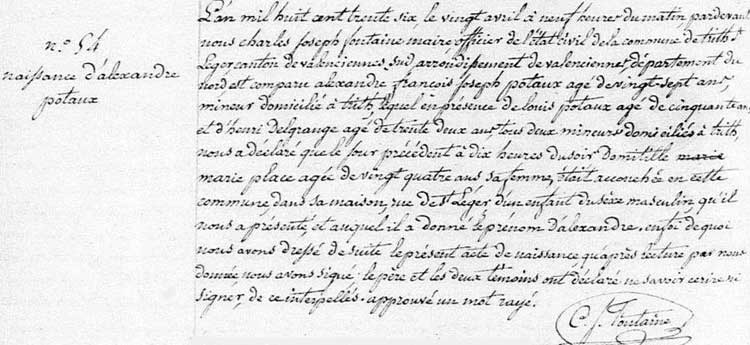 n.o 54
naissance d'alexandre
potaux
L'an mil huit cent trente six, le vingt avril à neuf heures du matin, pardevant
nous charles joseph fontaine maire officier de l'état civil de la commune de trith St
Léger canton de valenciennes sud arrondissement de valenciennes, département du
nord est comparu alexandre françois joseph potaux agé de vingt-sept ans,
mineur domicilié à trith, lequel en présence de louis potaux agé de cinquante ans
et d'henri delgrange agé de trente deux ans tous deux mineurs domiciliés à trith,
nous a déclaré que le jour précédent à dix heures du soir domitille marie
marie place agée de vingt quatre ans sa femme, était accouchée en cette
commune, dans sa maison, rue de St Léger d'un enfant du sexe masculin, qu'il
nous a présenté, et auquel il a donné le prénom d'alexandre. en foi de quoi
nous avons dressé de suite le présent acte de naissance qu'après lecture par nous
donnée nous avons signé. le père et les deux témoins ont déclaré ne savoir écrire ni
signer, de ce interpellés. approuvé un mot rayé.
C. J. Fontaine